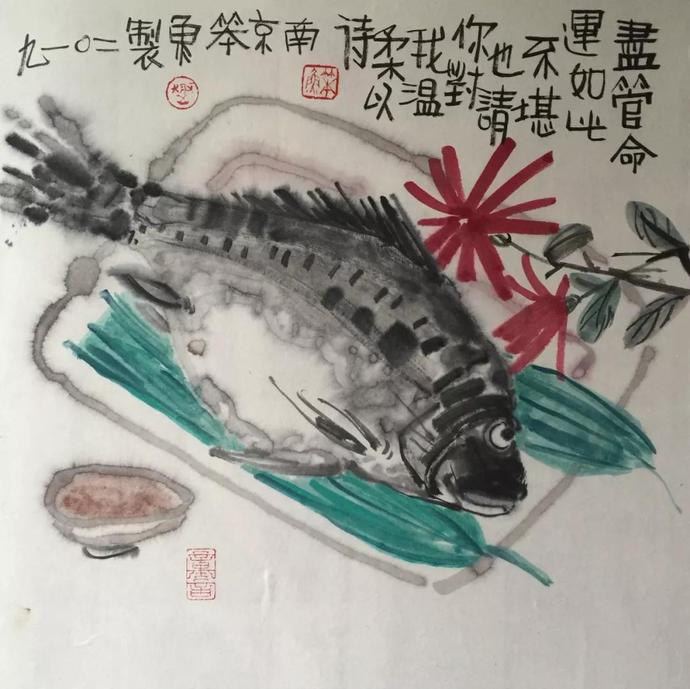 盡管命
運如此
不堪
也請
你對
我溫
柔以
待
南京笨魚製二〇一九